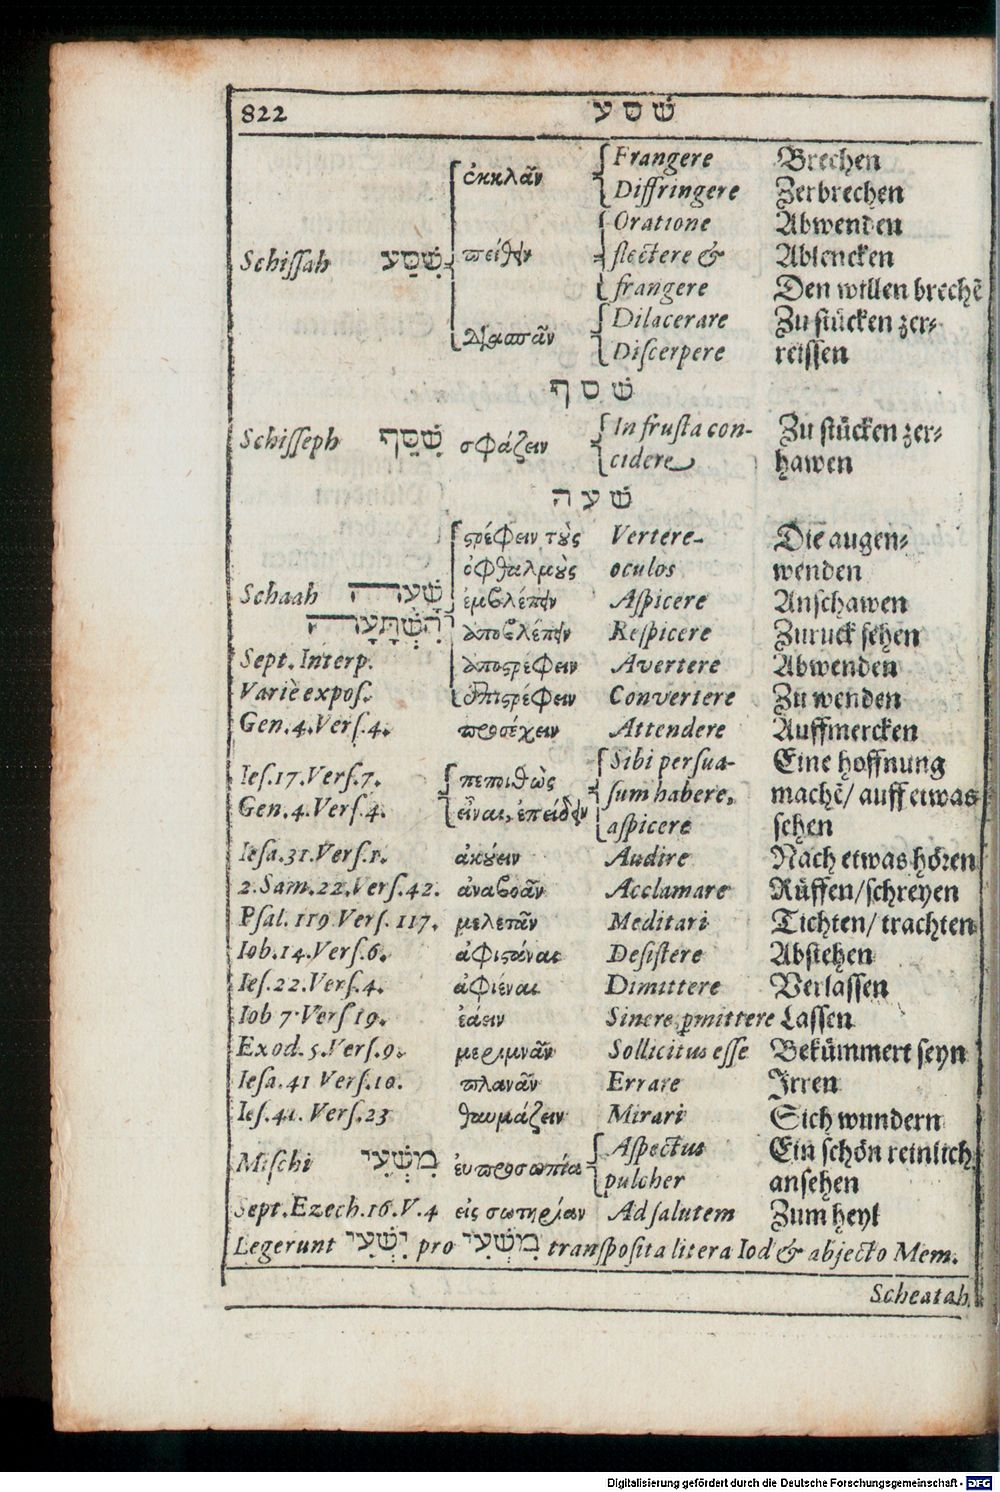 822 שׁסע
ἐκκλᾶν Frangere Brechen
Diffringere Zerbrechen
Oratione Abwenden
Schiſſah שִׁסַּע πείθειν flectere & Ablencken
frangere Den willen brechẽ
Dilacerare Zu ſtücken zer-
διασπᾶν Diſcerpere reiſſen
שׁסף
Schiſſeph שִׁסֵּף σφάζειν In fruſta con- Zu ſtücken zer-
cidere hawen
שׁעה
ςρέφειν τοὺς Vertere Die augen-
ὀφθαλμοὺς oculos wenden
Schaah שָׁעָה ἐμβλέπειν Aſpicere Anſchawen
הִשְׁתָּעָה ἀποβλέπειν Reſpicere Zuruck ſehen
Sept. Interp. ἀποςρέφειν Avertere Abwenden
Variè expoſ. ἐπιςρέφειν Convertere Zu wenden
Gen. 4. Verſ. 4. προσέχειν Attendere Auffmercken
Sibi perſua- Eine hoffnung
Ieſ. 17. Verſ. 7. πεποιθὼς ſum habere, machẽ/ auff etwas
Gen. 4. Verſ. 4. εἶναι, ἐπείδειν aſpicere ſehen
Ieſa. 31. Verſ. 1. ἀκούειν Audire Nach etwas hören
2. Sam. 22. Verſ. 42. ἀναβοᾶν Acclamare Rüffen/ ſchreyen
Pſal. 119 Verſ. 117. μελετᾶν Meditari Tichten/ trachten
Iob. 14. Verſ. 6. ἀφιςάναι Deſiſtere Abſtehen
Ieſ. 22. Verſ. 4. ἀφιέναι Dimittere Verlaſſen
Iob 7 Verſ 19. ἐάειν Sinere, p̱mittere Laſſen
Exod. 5. Verſ. 9. μεριμνᾶν Sollicitus eſſe Bekümmert ſeyn
Ieſa. 41 Verſ. 10. πλανᾶν Errare Irren
Ieſ. 41. Verſ. 23 θαυμάζειν Mirari Sich wundern
Aſpectus Ein ſchön reinlich
Miſchi מִשְׁעִי εὐπροσωπία pulcher anſehen
Sept. Ezech. 16. V. 4 εἰς σωτηρίαν Ad ſalutem Zum heyl
Legerunt יִשְׁעִי pro מִשְׁעִי transpoſita litera Iod & abjecto Mem.
Scheatah
Digitalisierung gefördert durch die Deutsche Forschungsgemeinschaft - DFG